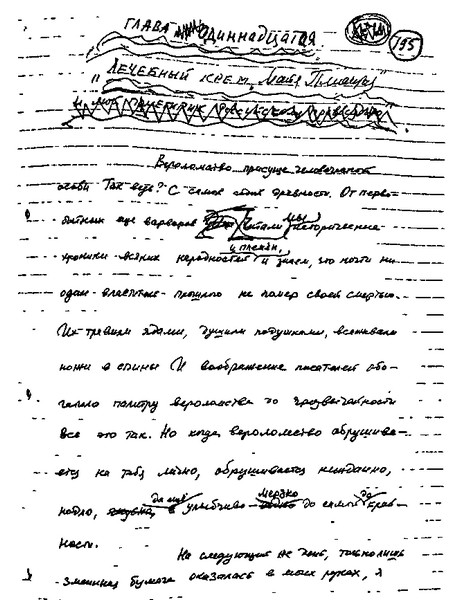 ГЛАВА одиннадцатая
195
"ЛЕЧЕБНЫЙ КРЕМ
и
Вероломство присуще человеческой
особи. Так ведь? С самой древности. От перво-
бытных еще варваров читали мы исторические
хроники всяких народностей и племён, и знаем, что почти ни
один властитель прошлого не помер своей смертью.
Их травили ядами, душили подушками, всаживали
ножи в спины И воображение писателей обо-
гатило палитру вероломства до чрезвычайности
Все это так. Но когда вероломство обрушива-
ется на тебя лично, обрушивается нежданно,
подло, да ещё улыбчиво мерзко до самой
ности.
На следующий же день, только лишь
змеиная бумага оказалась в моих руках, я